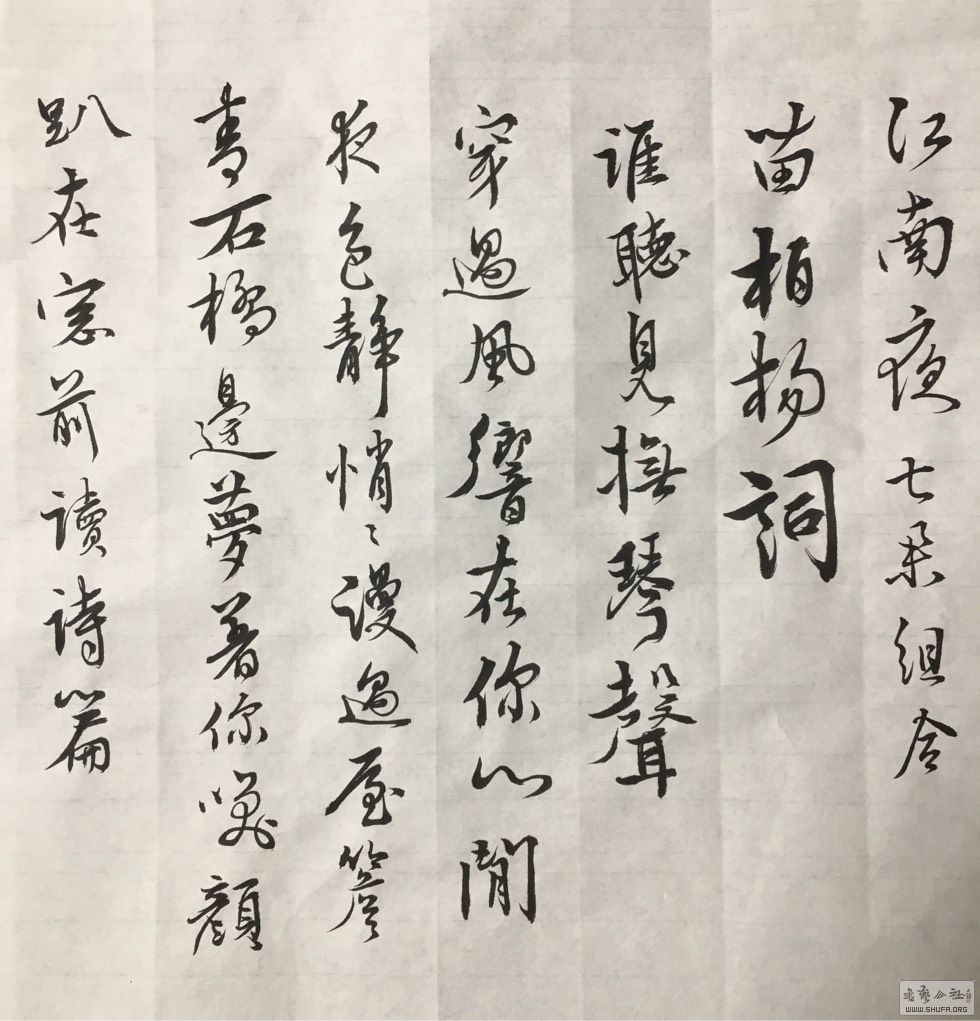 江南夜七朵组合
苗柏杨詞
谁聽見撫琴聲
穿過風響在你心間
夜色静悄悄漫過屋簷
青石橋邊夢着你笑顔
趴在窓前讀詩篇
書藝公社
WWW.SHUFA.ORG